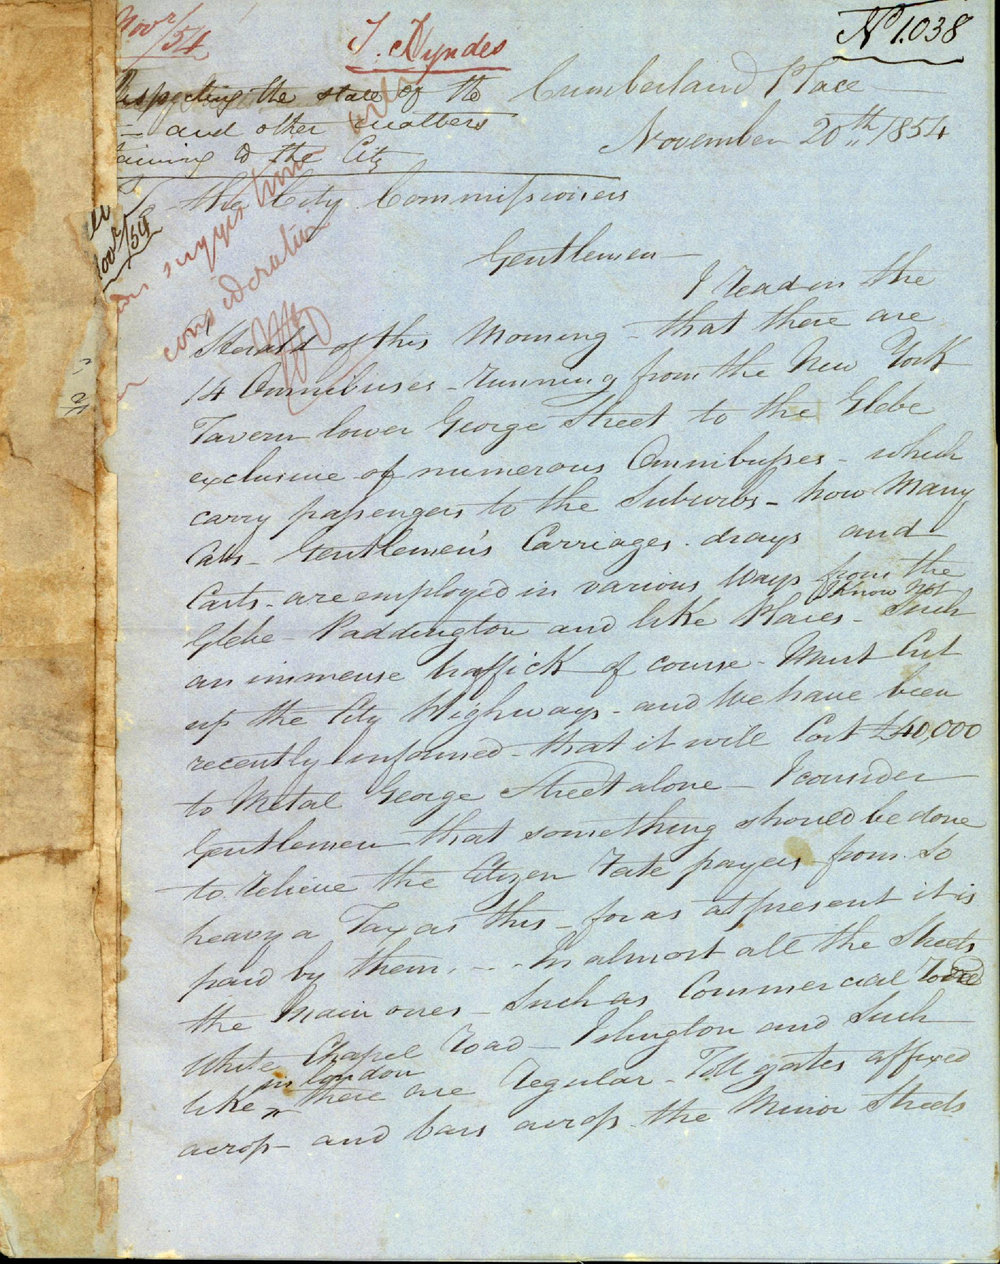 Novr/54
T. Hyndes
No 1.038
specting the state of the
— and other matters
taining to the City
Cumberland Place
November 20th, 1854
To the City Commissioners
Novr/54
consideration
Gentlemen —
I read in the
Herald of this Morning — that there are
14 Omnibuses — running from the New York
Tavern lower George Street to the Glebe
exclusive of numerous Omnibusses — which
carry passengers to the Suburbs — how Many
Cabs — Gentlemen's Carriages. drays and
Carts — are employed in various Ways from the
I know not
Glebe — Paddington and like Places — Such
an immense traffick of course — Must Cut
up the City Highways — and We have been
recently informed — that it will Cost £40,000
to Metal George Street alone — I consider
Gentlemen that something should be done
to relieve the Citizen rate payers from so
heavy a Tax as this — for as at present it is
paid by them. — . In almost all the Streets
the Main ones — Such as Commercial Road
White Chapel Road — Islington and Such
in London
like there are regular — Toll gates affixed
across — and bars across the Minor Streets